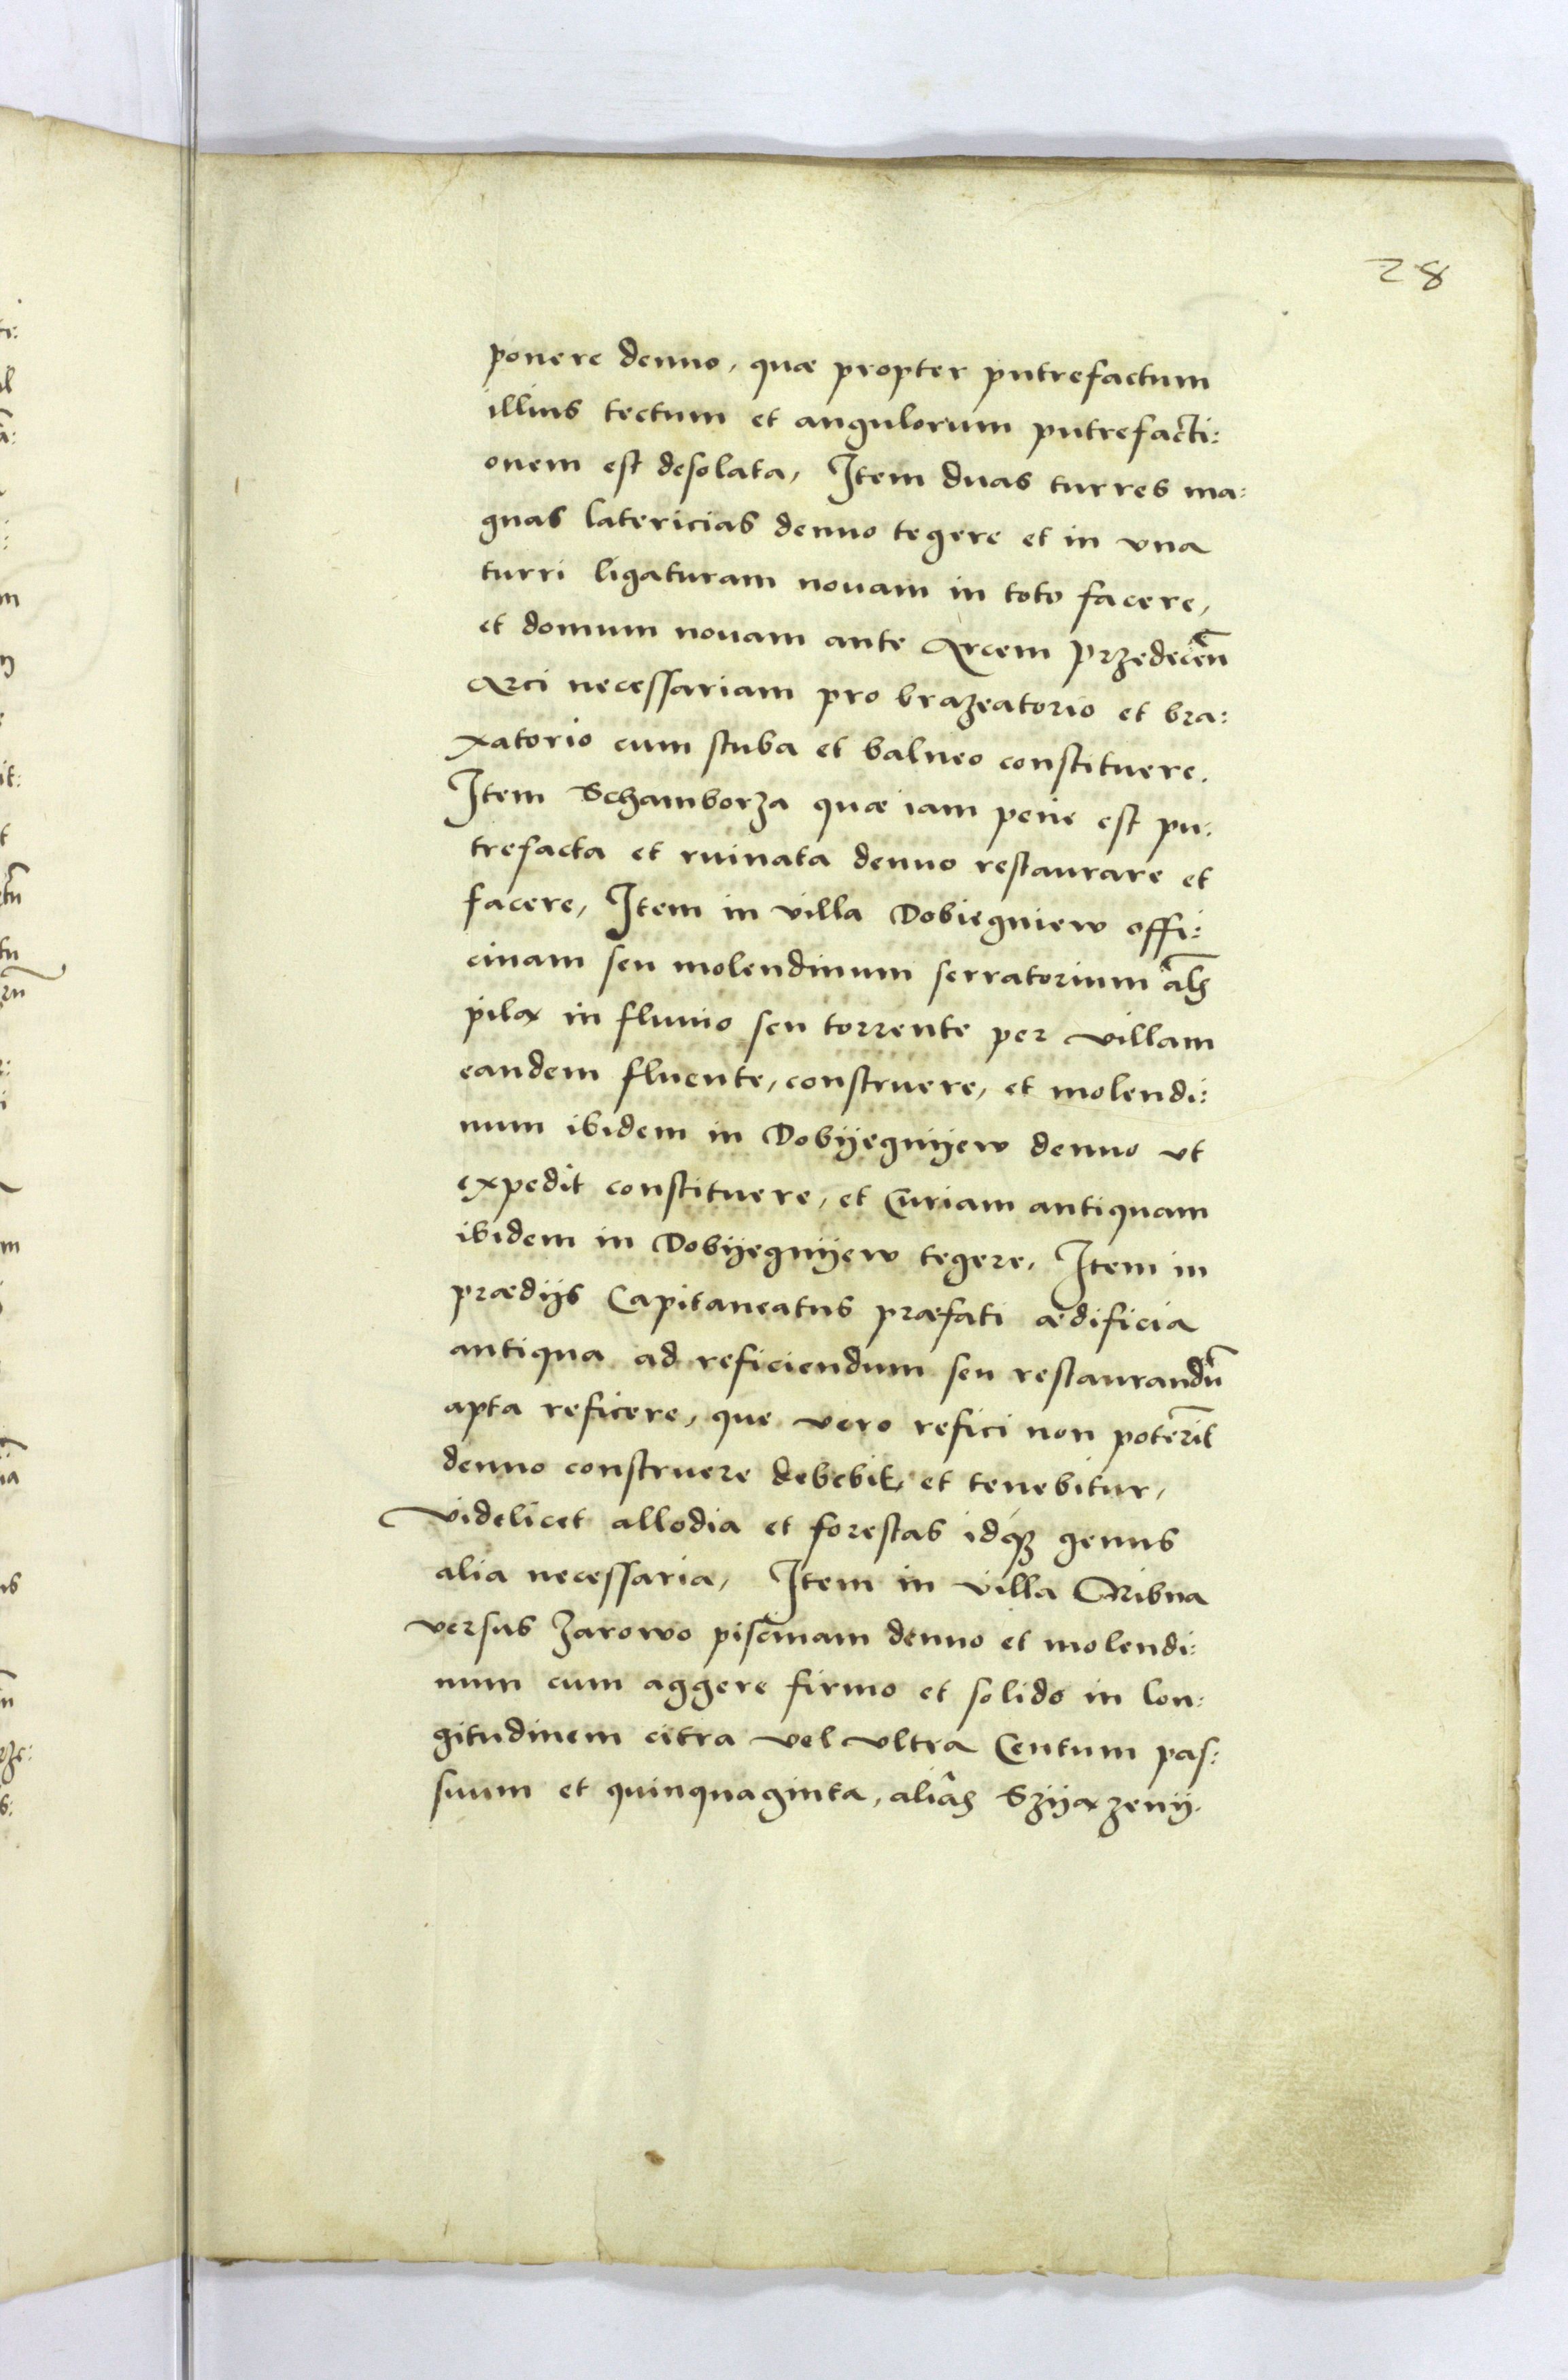 28
ponere denuo, quæ propter putrefactum
illius tectum et angulorum putrefacti:
onem est desolata, Item duas turres ma:
gnas latericias denuo tegere et in vna
turri ligaturam nouam in toto facere,
et domum nouam ante Arcem Przedecen̄
Arci necessariam pro brazeatorio et bra:
xatorio cum stuba et balneo constituere.
Item Schamborza quæ iam pene est pu:
trefacta et ruinata denuo restaurare et
facere, Item in villa Dobiegniew offi:
cinam seu molendinum serratorium al̄s
pila in fluuio seu torrente per villam
eandem fluente, construere, et molendi:
num ibidem in Dobyegnyew denuo vt
expedit constituere, et Curiam antiquam
ibidem in Dobyegnyew tegere, Item in
prædijs Capitaneatus præfati ædificia
antiqua ad reficiendum seu restaurandū
apta reficere, que vero refici non poterīt
denuo construere debebit et tenebitur,
videlicet allodia et forestas idq3 genus
alia necessaria, Item in villa Bribna
versus Zarowo piscinam denuo et molendi:
num cum aggere firmo et solido in lon:
gitudinem citra vel vltra Centum pas:
suum et quinquaginta, aliâs Szyazeny.